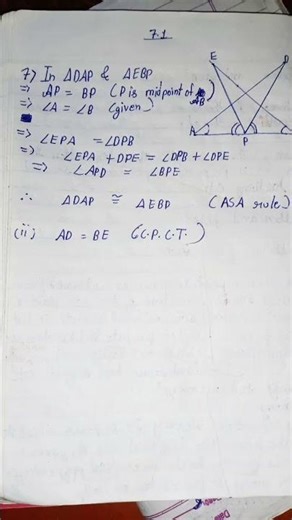 7.1
E
D
A
P
7) In ΔDAP & ΔEBP
=> AP = BP (P is midpoint of AB)
=> ∠A = ∠B (given)
=> ∠EPA = ∠DPB
=> ∠EPA + DPE = ∠DPB + ∠DPE
=> ∠APD = ∠BPE
∴ ΔDAP ≅ ΔEBD (ASA rule)
(ii) AD = BE (C.P.C.T.)